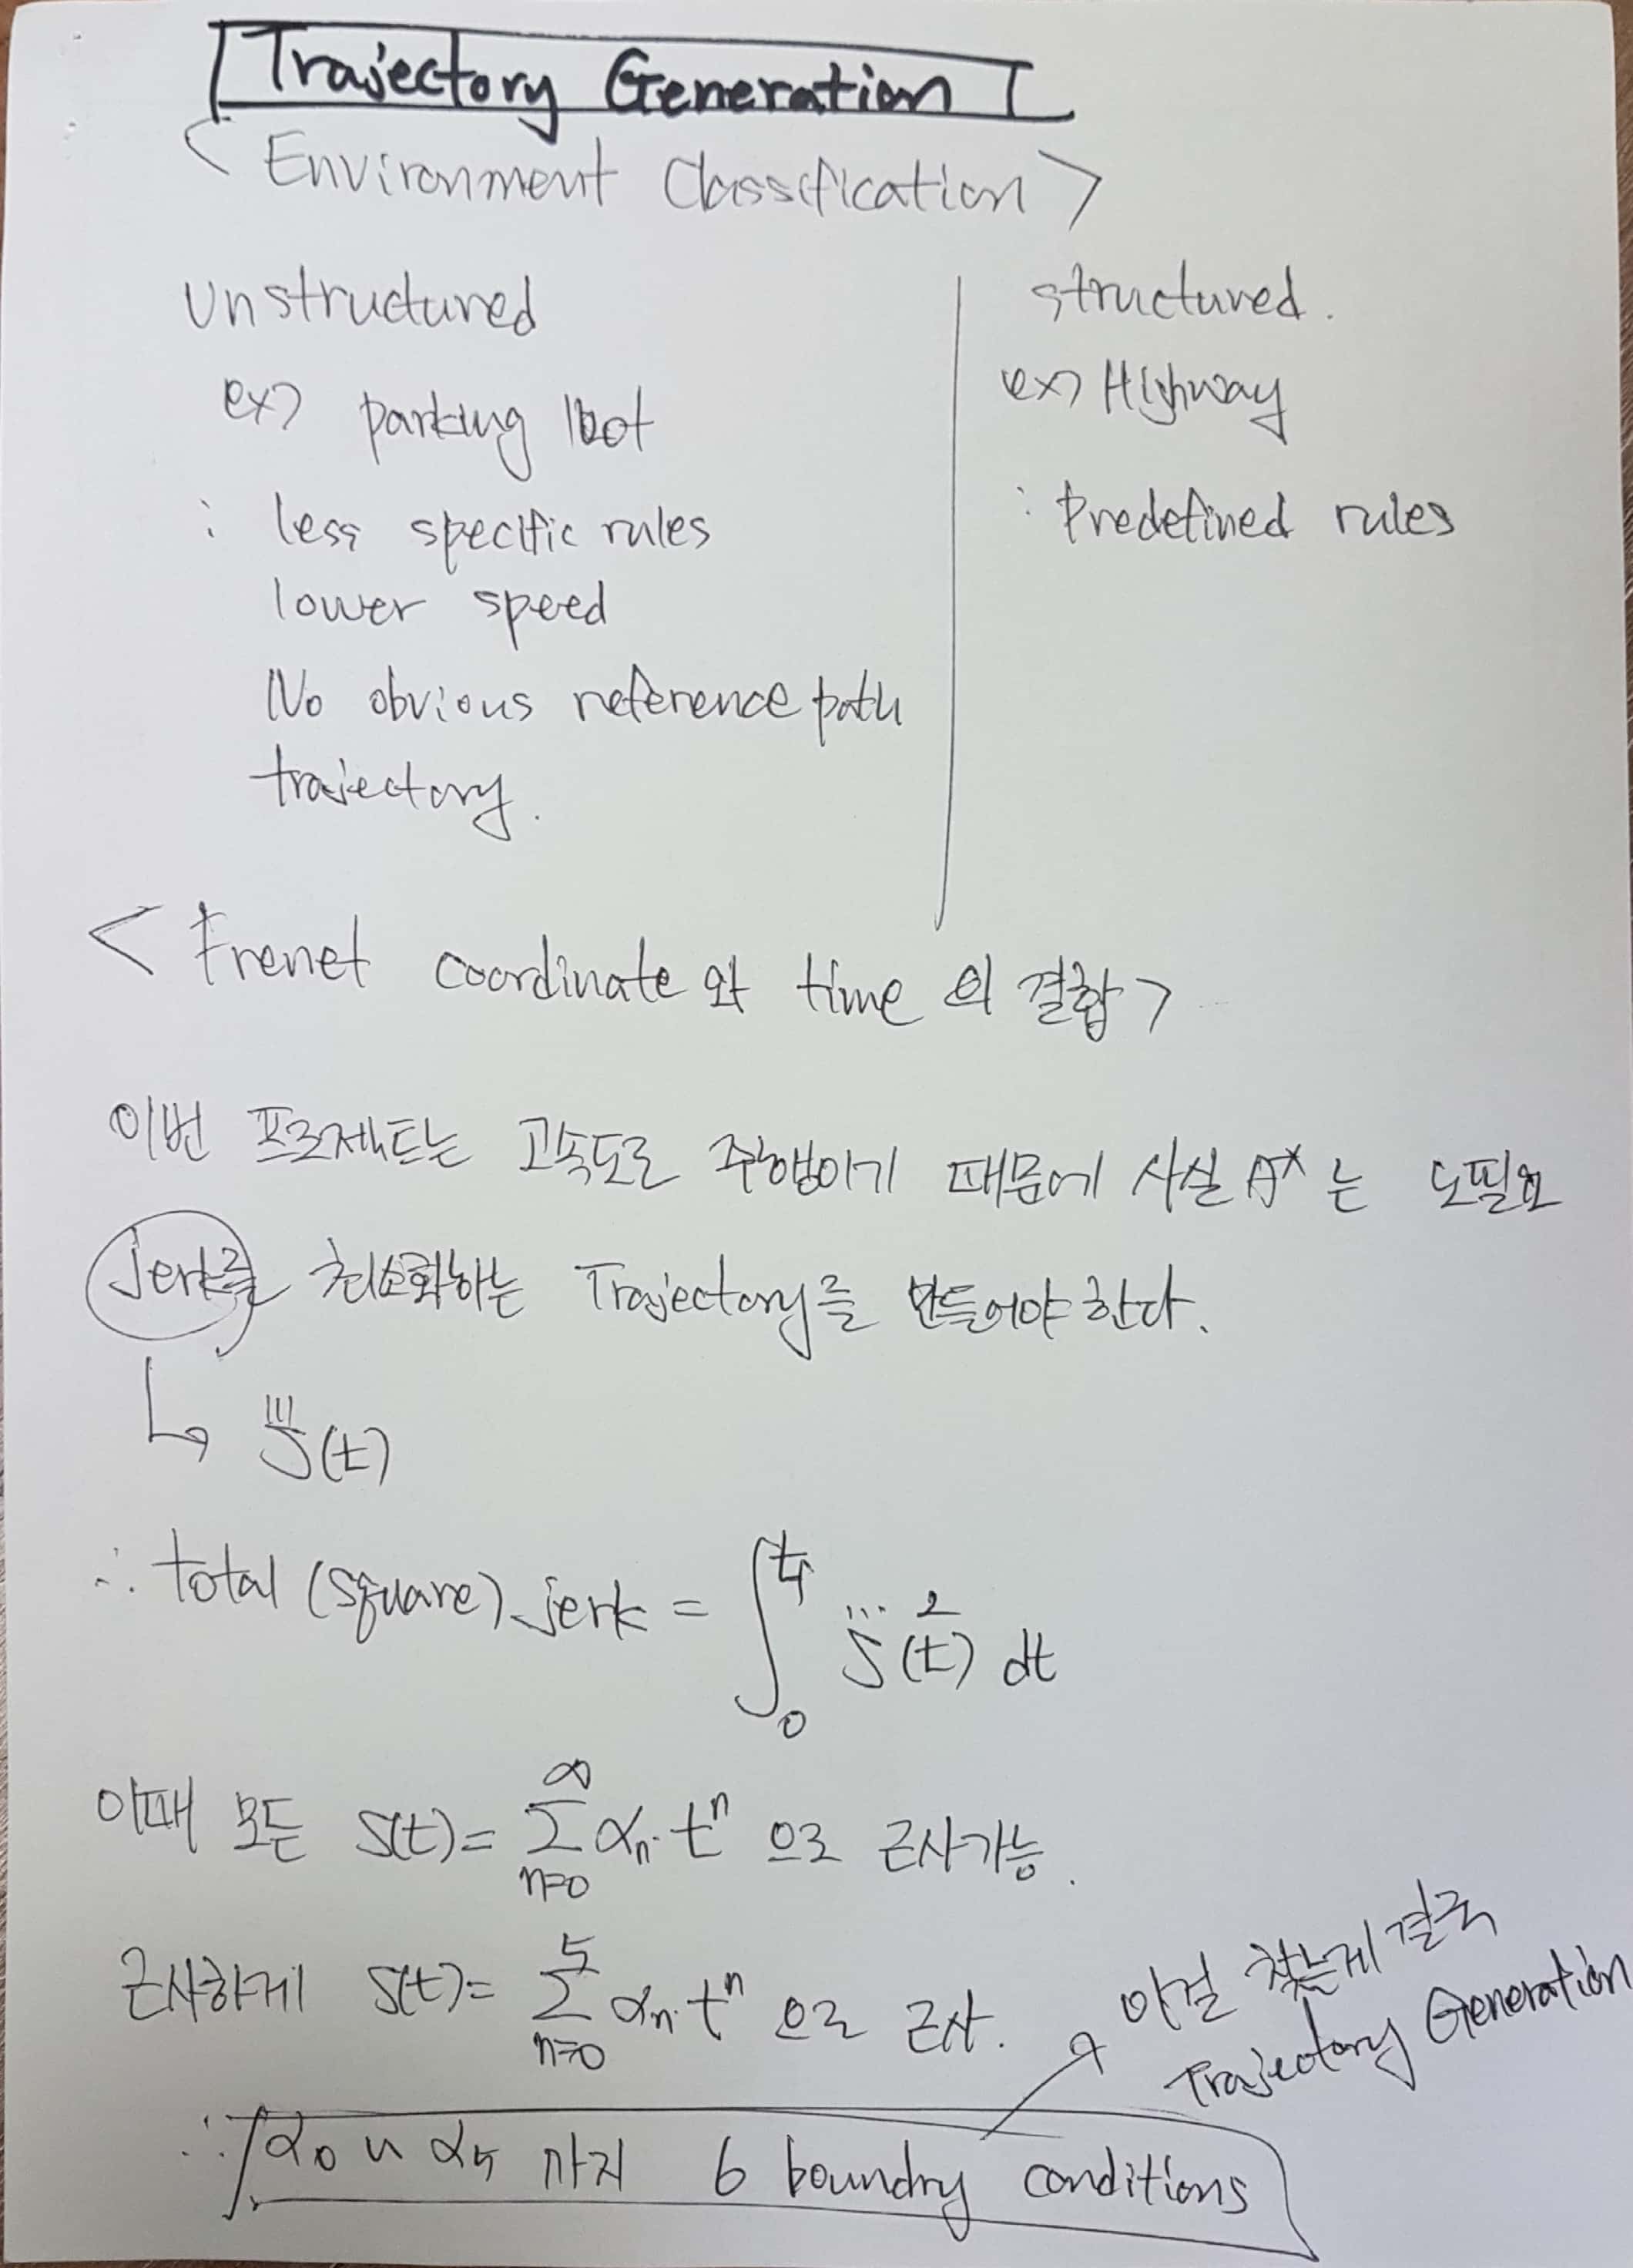 Trajectory Generation
< Environment Classification >
unstructured
ex) parking lot
: less specific rules
lower speed
No obvious reference path
trajectory.
structured.
ex) Highway
: Predefined rules
< Frenet coordinate 와 time 의 결합 >
이번 프로젝트는 고속도로 주행이기 때문에 사실 A* 는 노필요
jerk를 최소화하는 Trajectory를 만들어야 한다.
↳ s⃛(t)
∴ total (square) jerk = ∫₀^{tf} s⃛(t)² dt
이때 모든 s(t) = Σ_{n=0}^{∞} αn · t^n 으로 근사가능.
근사하게 s(t) = Σ_{n=0}^{5} αn · t^n 으로 근사.
이걸 찾는게 결국
Trajectory Generation
∴ α0 ~ α5 까지 6 boundry conditions